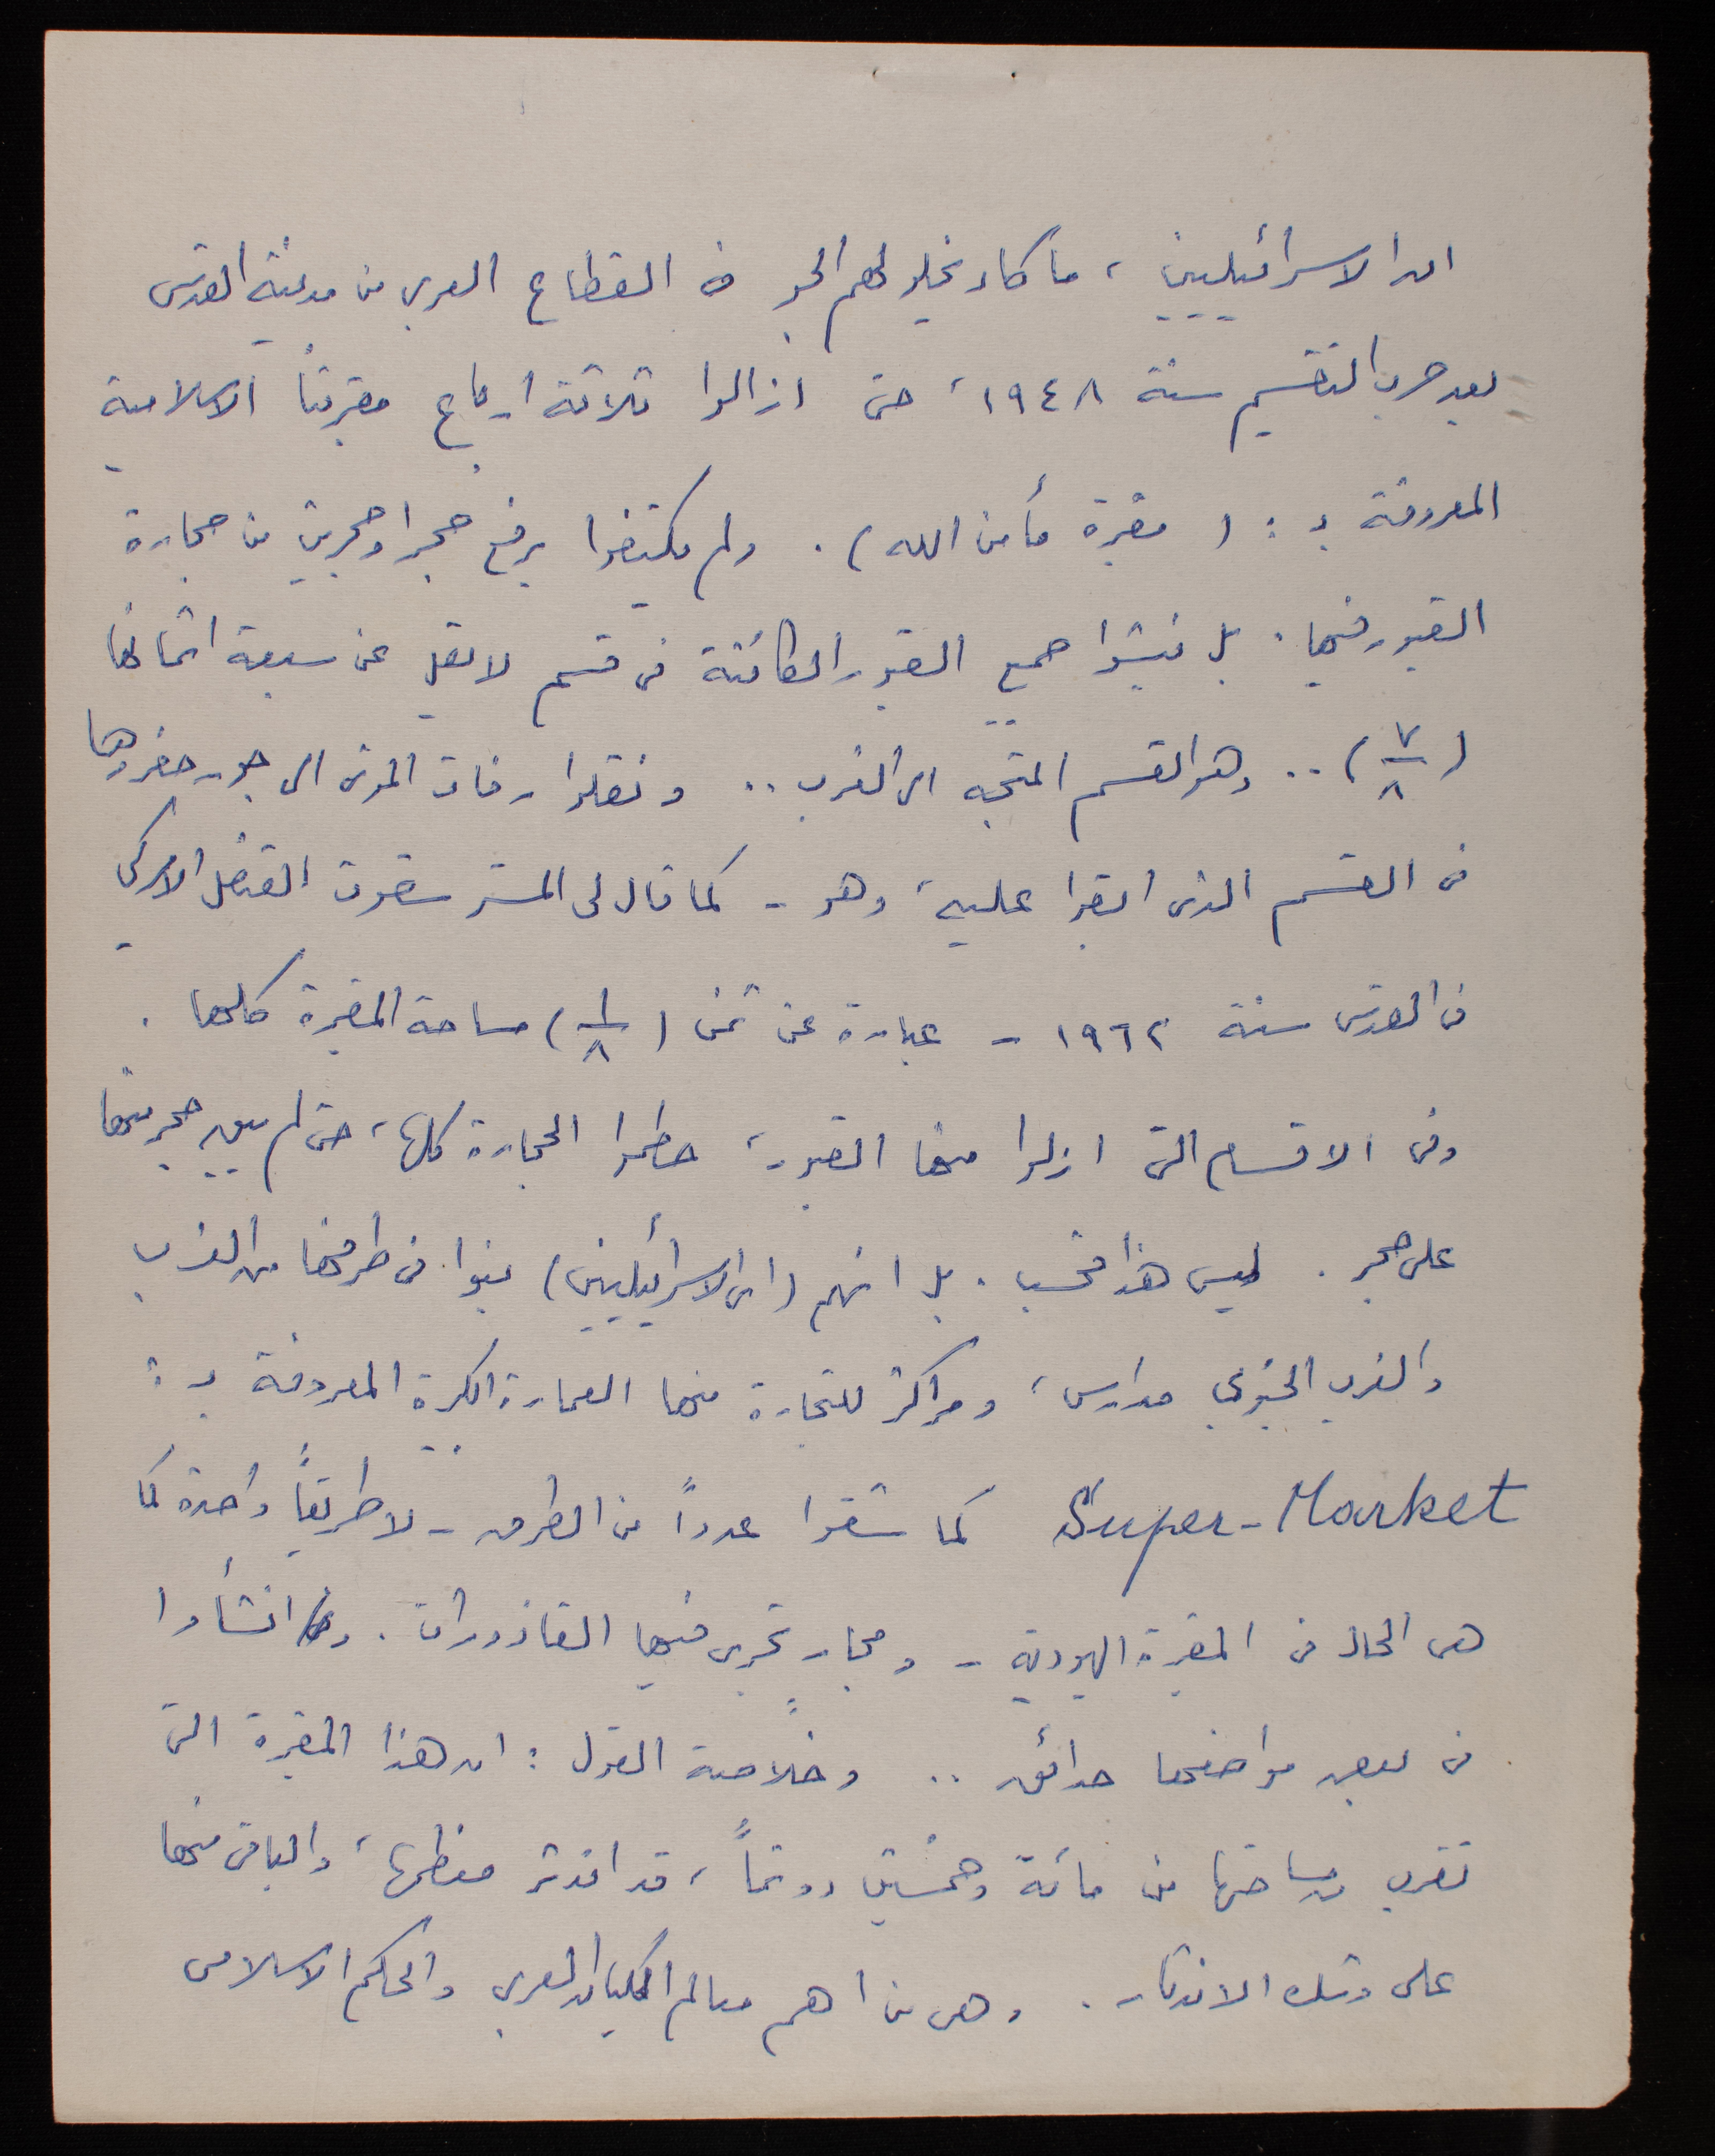 ان الاسرائيليين، ما كاد يخلو لهم الجو في القطاع العربي من مدينة القدس
بعد حرب التقسيم سنة ١٩٤٨، حتى ازالوا ثلاثة ارباع مقبرتنا الاسلامية
المعروفة بـ : ( مقبرة مأمن الله ) . ولم يكتفوا برفع حجر او حجرين من حجارة
القبور فيها . بل نبشوا جميع القبور الكائنة في قسم لا يقل عن سبعة اثمانها
( ٧/٨ ) .. وهو القسم المتجه الى الغرب .. ونقلوا رفات الموتى الى جور حفروها
في القسم الذي ابقوا عليه، وهو - كما قال لي المستر القنصل الامركي
في القدس سنة ١٩٦٢ - عبارة عن ثمن ( ١/٨ ) مساحة المقبرة كلها .
وفي الاقسام التي ازلوا منها القبور، حطموا الحجارة كلها، حتى لم يبق حجر منها
على حجر . ليس هذا فحسب . بل انهم (اي الاسرائيليين) بنوا في طرفها من الغرب
والغرب الجنوبي مدارس، ومراكز للتجارة منها العمارة الكبيرة المعروفة بـ :
Super-Market كما شقوا عدداً من الطرق - لا طريقاً واحدة كما
هي الحال في المقبرة اليهودية - ومجار تجري فيها القاذورات . وانشأوا
في بعض مواضعها حدائق .. وخلاصة القول : ان هذا المقبرة التي
تقرب مساحتها من مائة وخمسين دونماً، قد اندثر معظمها، والباقي منها
على وشك الاندثار . وهي من اهم معالم الكيان العربي والحكم الاسلامي